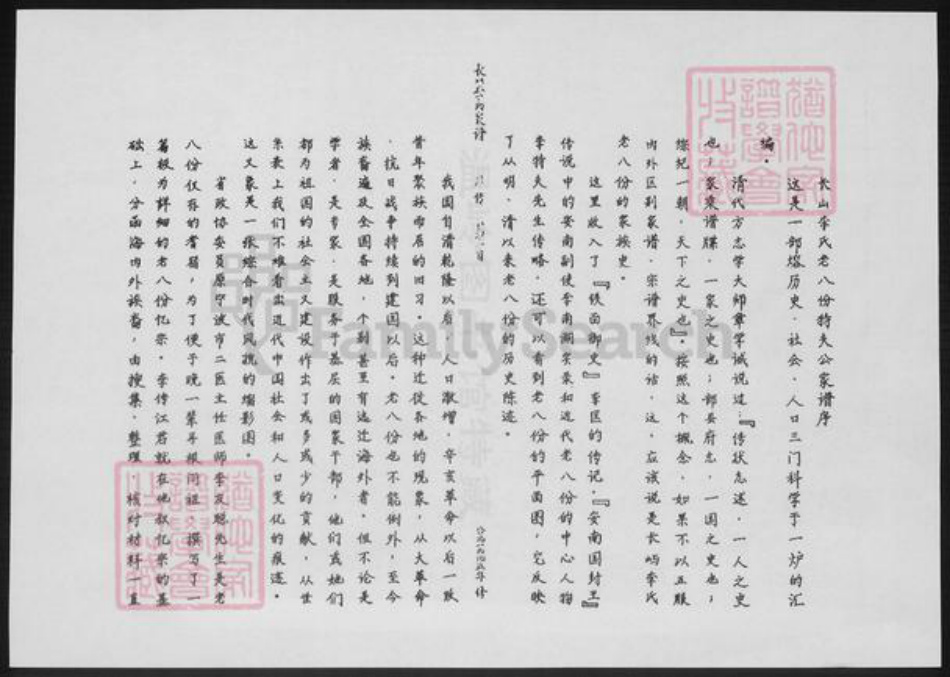 长山李氏老八份特夫公家谱序
这是一部熔历史、社会、人口三门科学于一炉的汇
编。
清代方志学大师章学诚说过：『传状志述，一人之史
也；家乘谱牒，一家之史也；部县府志，一国之史也；
综纪一朝，天下之史也』。按照这个概念，如果不以五服
内外区别家谱、宗谱界线的话，这，应该说是长山李氏
老八份的家族史。
这里收入了『铁面御史』李匡的传记，『安南国封王』
传说中的安南副使李南湖宗案和近代老八份的中心人物
李特夫先生传略，还可以看到老八份的平面图，它反映
了从明、清以来老八份的历史陈迹。
家谱
修
我国自清乾隆以后，人口激增，辛亥革命以后一改
昔年聚族而居的旧习。这种迁徙各地的现象，从大革命
、抗日战争持续到建国以后。老八份也不能例外，至今
族裔遍及全国各地，个别甚至有远迁海外者。但不论是
学者、是专家、是服务于基层的国家干部，他们或她们
都为祖国的社会主义建设作出了或多或少的贡献，从世
系表上我们不难看出近代中国社会和人口变化的痕迹。
这又象是一张综合时代风貌的缩影图。
省政协委员原宁波市二医主任医师李友聪先生是老
八份仅存的耆宿，为了便于晚一辈寻根问祖，撰写了一
篇极为详细的老八份忆录。李传江君就在他叔忆录的基
础上，分函海内外族裔，由搜集、整理、核对材料一直
FamilySearch